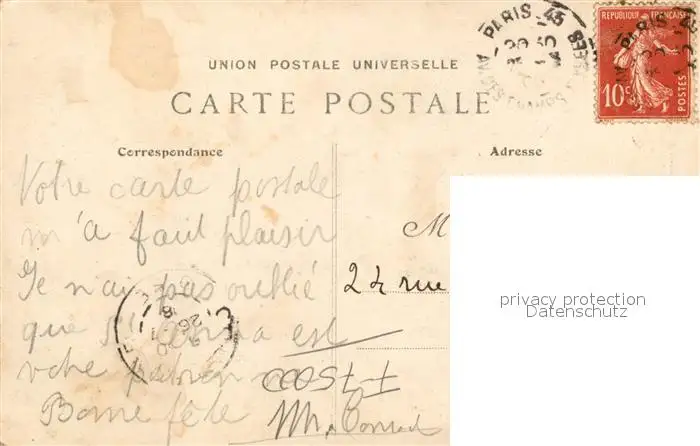 UNION POSTALE UNIVERSELLE
CARTE POSTALE
Correspondance
Adresse
REPUBLIQUE FRANÇAISE
10c POSTES
PARIS
Votre carte postale
m'a fait plaisir
Je n'ai pas oublié
que est
votre
Bonne fête
M
24 rue
privacy protection
Datenschutz